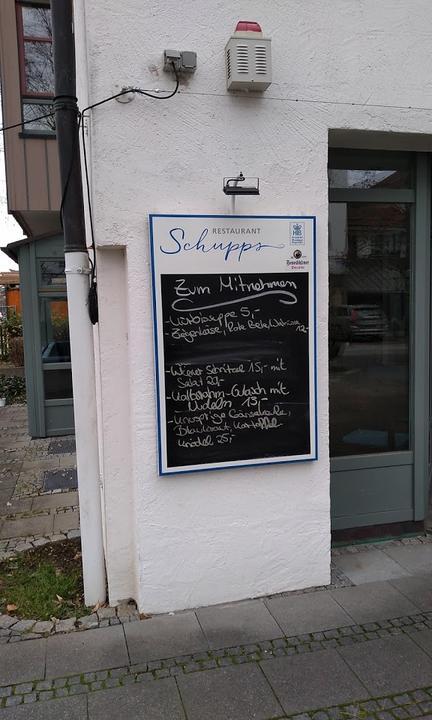 RESTAURANT
Schupps
HB
Zum Mitnehmen
-Kürbissuppe 5,-
-Ziegenkäse, Rote Bete, Walnüsse 12,-
-Wiener Schnitzel 15,- mit
Salat 21,-
-Kalbsrahm-Gulasch mit
Nudeln 15,-
-Knusprige Gänsekeule,
Blaukraut, Kartoffel
knödel 25,-